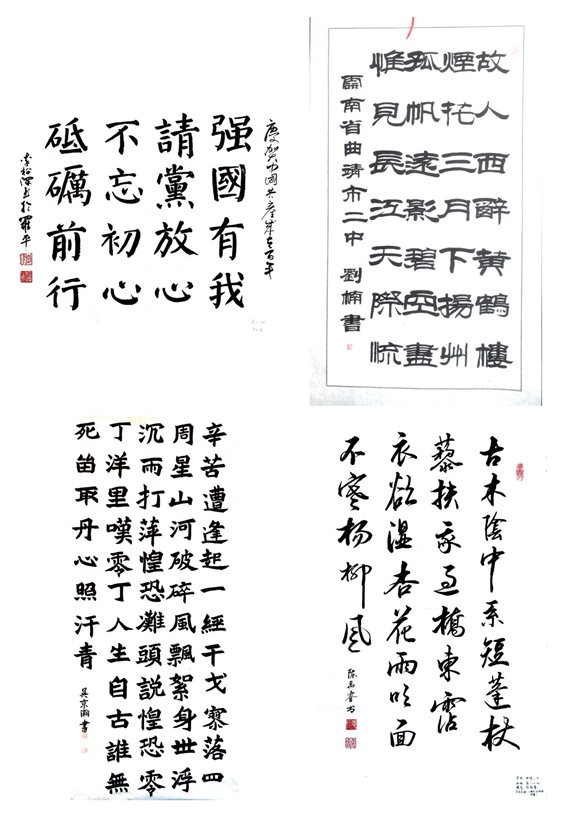 强國有我
請黨放心
不忘初心
砥礪前行
故人西辭黄鶴樓
煙花三月下揚州
孤帆遠影碧空盡
惟見長江天際流
雲南省曲靖市二中 劉楠書
辛苦遭逢起一經干戈寥落四
周星山河破碎風飄絮身世浮
沉雨打萍惶恐灘頭説惶恐零
丁洋里嘆零丁人生自古誰無
死留取丹心照汗青
吴京瀚書
古木陰中系短蓬杖
藜扶我过橋東霑
衣欲濕杏花雨吹面
不寒杨柳風